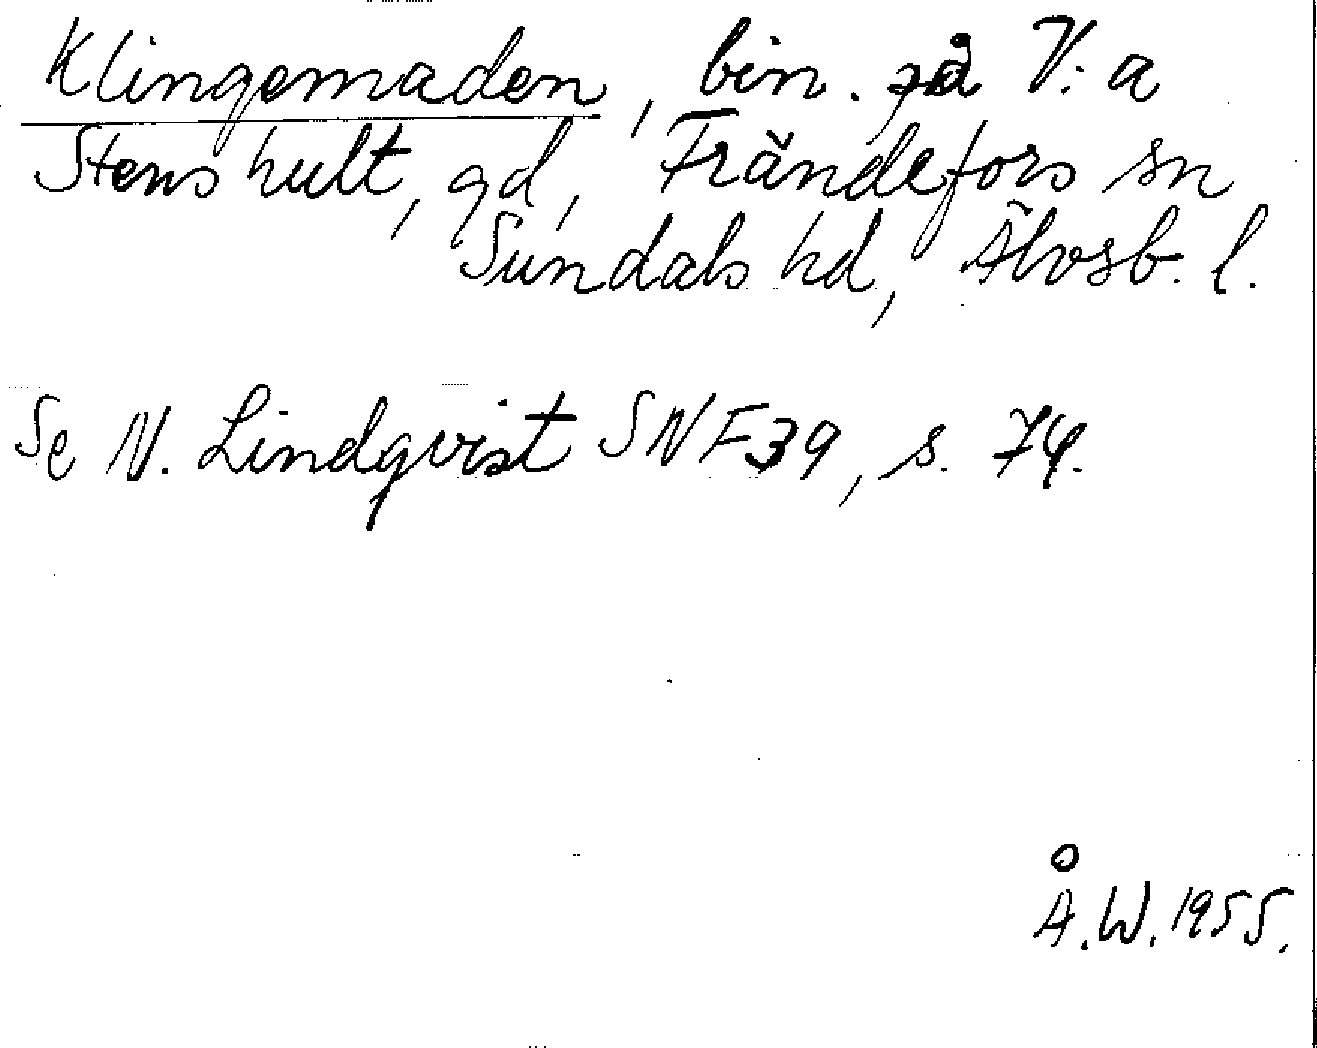 Klingemaden, bin. på V:a
Stenshult, gd, Frändefors sn
Sundals hd, Älvsb. l.
Se N. Lindqvist SNF 39, s. 74.
Å.W. 1955.